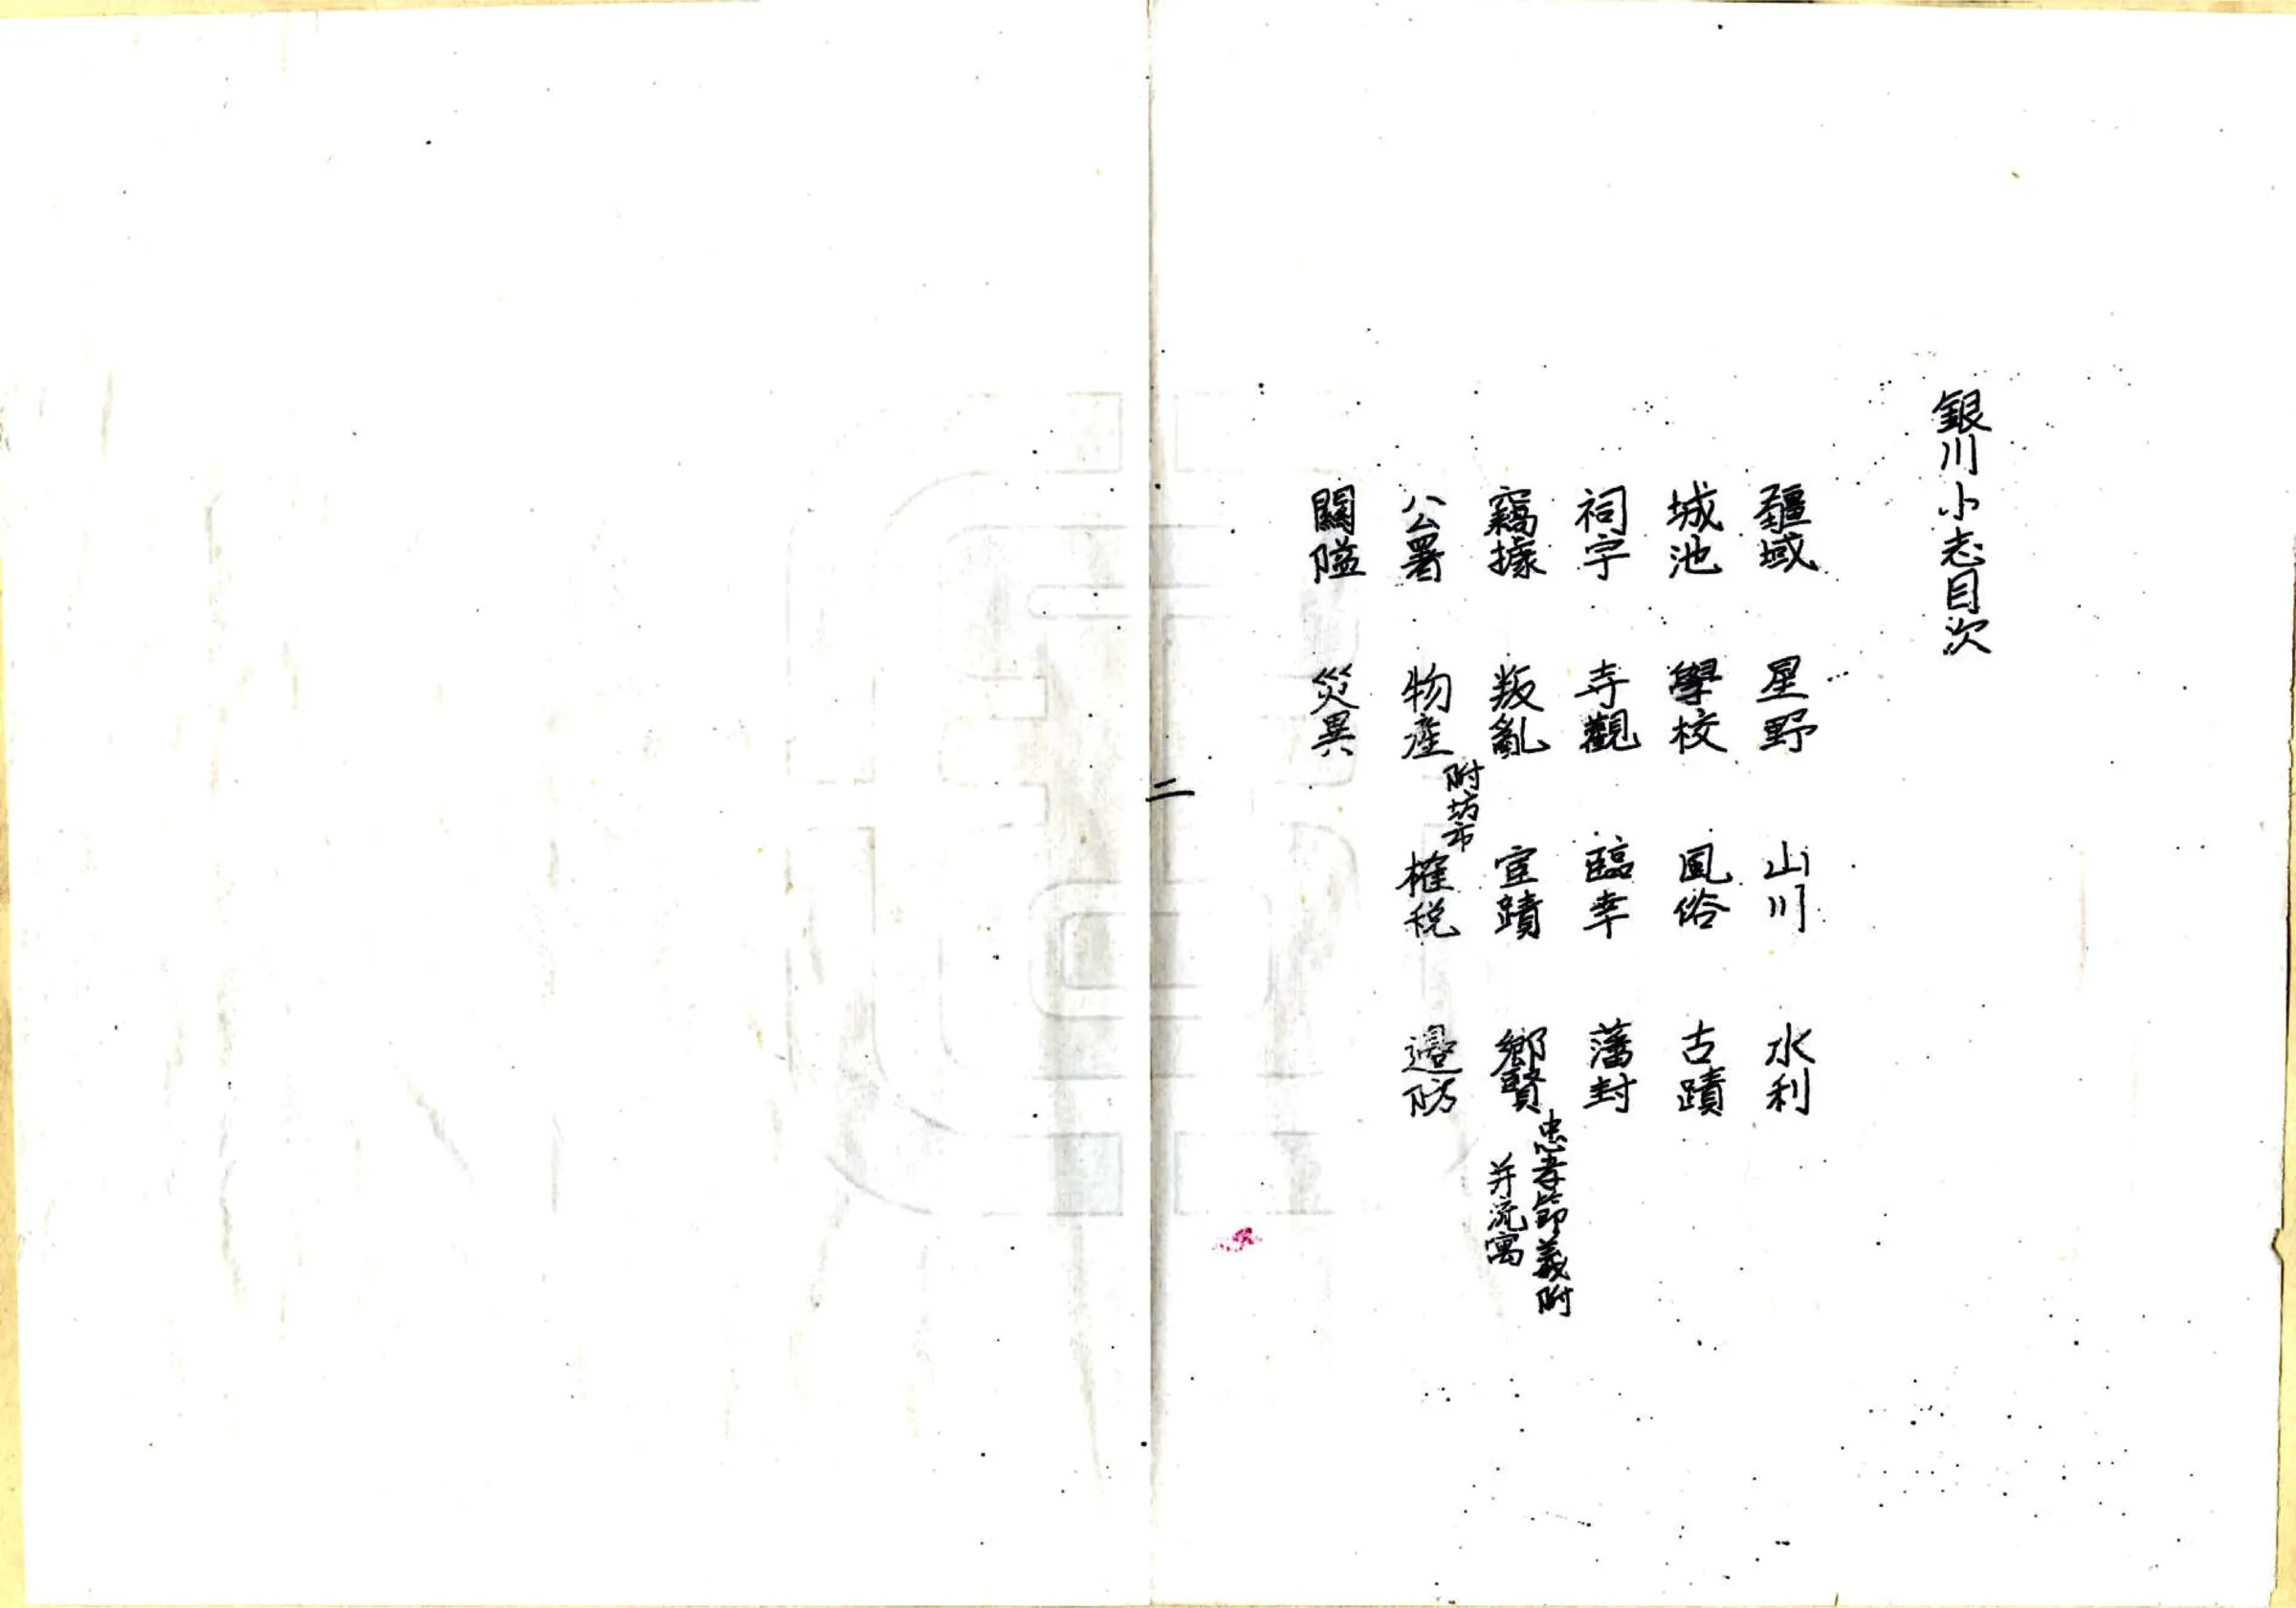 銀川小志目次
疆域 星野 山川 水利
城池 學校 風俗 古蹟
祠宇 寺觀 臨幸 藩封
竊據 叛亂 宦蹟 鄉賢 忠孝節義附
并流寓
公署 物產 附坊市 榷税 邊防
關隘 災異
二